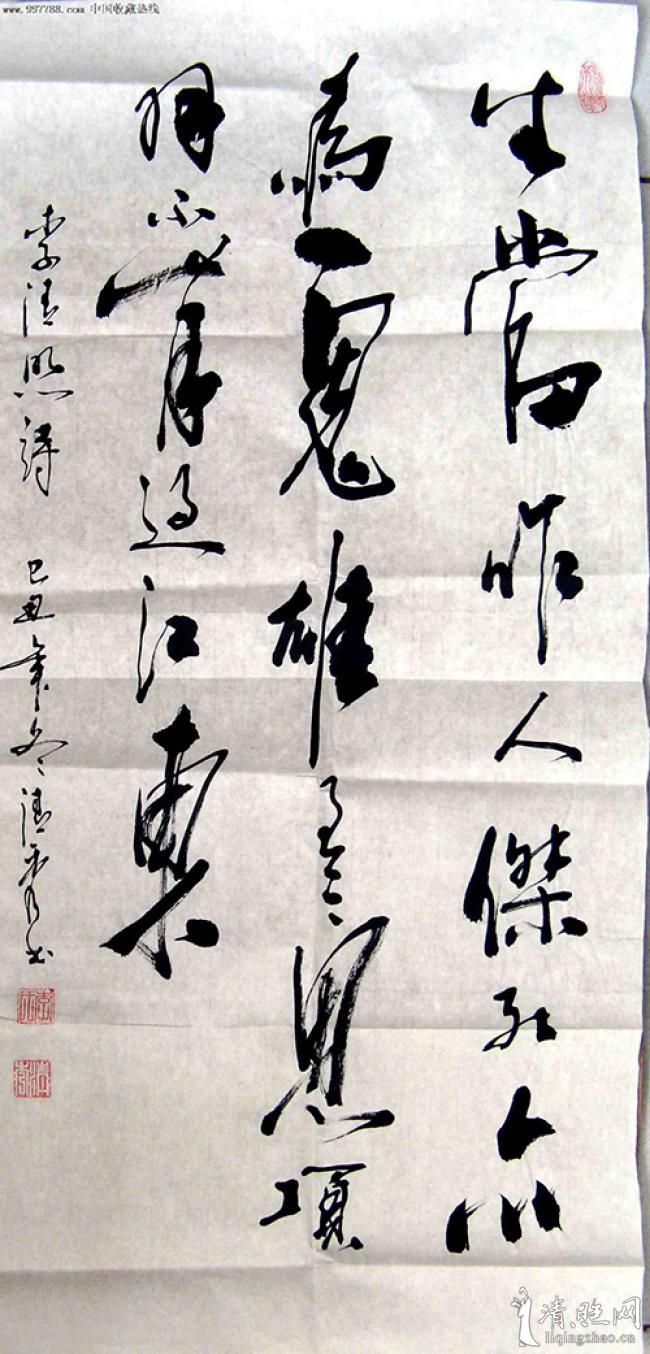 www.997788.com 中国收藏热线
生當昨人傑死亦
為鬼雄至今思項
羽不肯過江東
李清照詩 己丑年冬清书
清照网
liqingzhao.cn